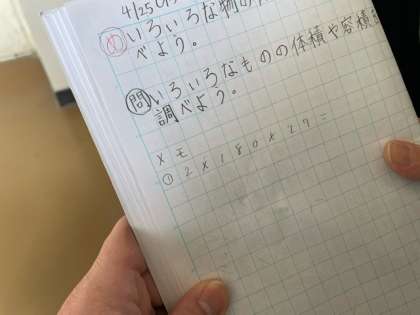 4/25
いろいろな物の
べよう。
問 いろいろなものの体積や容積を
調べよう。
メモ
① 2×180×27=